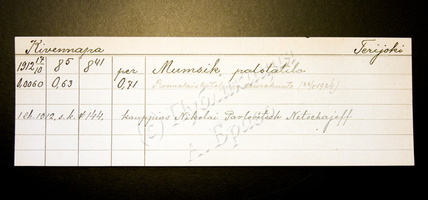 Kivennapa Terijoki
1912 17/10 85 841 per Mumsik, palstatila
0,0060 0,63 0,71
1 ek. 1912, s.k. # 144. kauppias Nikolai Pavlovitsch Netschajeff